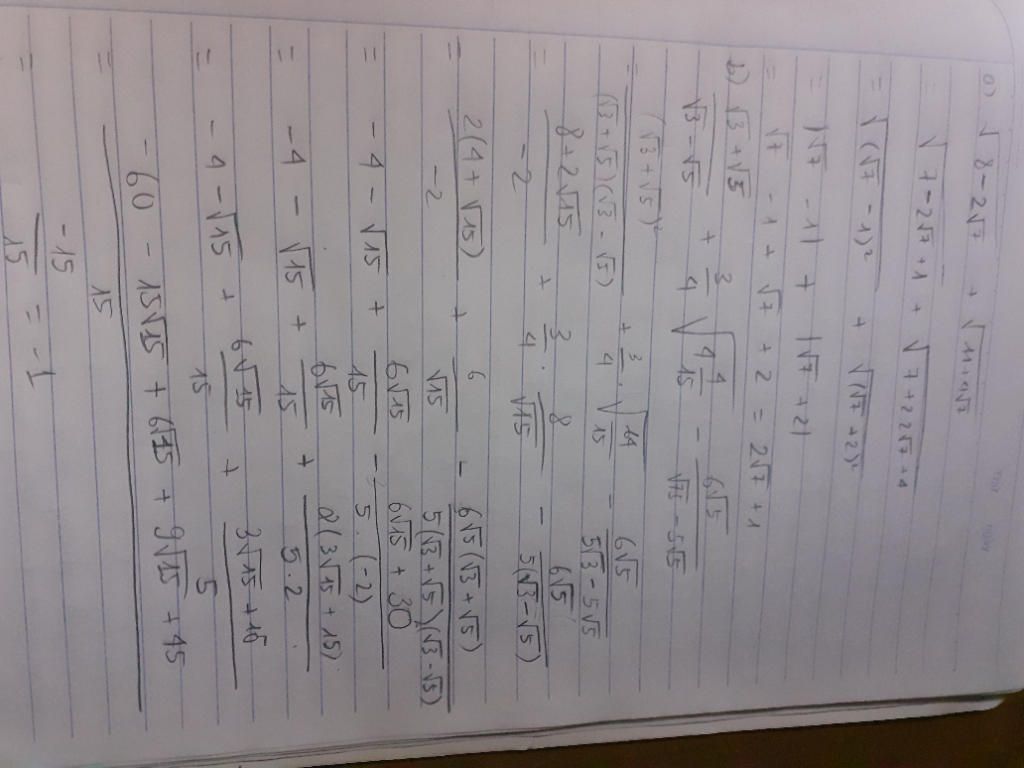 a) √8-2√7 + √11+4√7
= √7-2√7+1 + √7+2.2√7+4
= √(√7-1)² + √(√7+2)²
= |√7-1| + |√7+2|
= √7 -1 + √7 + 2 = 2√7 + 1
b) (√3+√5)/(√3-√5) + 3/4 √(4 4/15) - 6√5/(√75-5√5)
= (√3+√5)²/((√3+√5)(√3-√5)) + 3/4 . √(64/15) - 6√5/(5√3-5√5)
= (8+2√15)/-2 + 3/4 . 8/√15 - 6√5/(5(√3-√5))
= 2(4+√15)/-2 + 6/√15 - 6√5(√3+√5)/(5(√3+√5)(√3-√5))
= -4 - √15 + 6√15/15 - (6√15+30)/(5.(-2))
= -4 - √15 + 6√15/15 + 2(3√15+15)/(5.2)
= -4 - √15 + 6√15/15 + (3√15+15)/5
= (-60 - 15√15 + 6√15 + 9√15 + 45)/15
= -15/15 = -1